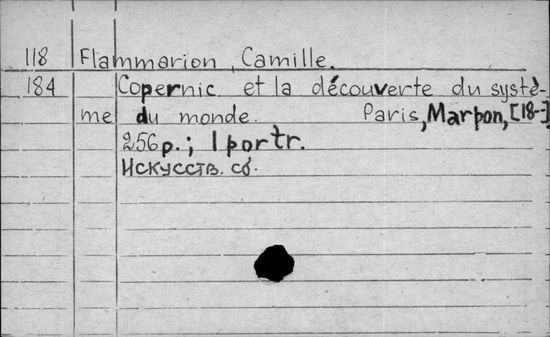 118 Flammarion, Camille.
184 Copernic et la découverte du systè-
me du monde. Paris, Marpon, [18-]
256p.; 1 portr.
Искусств. сб.